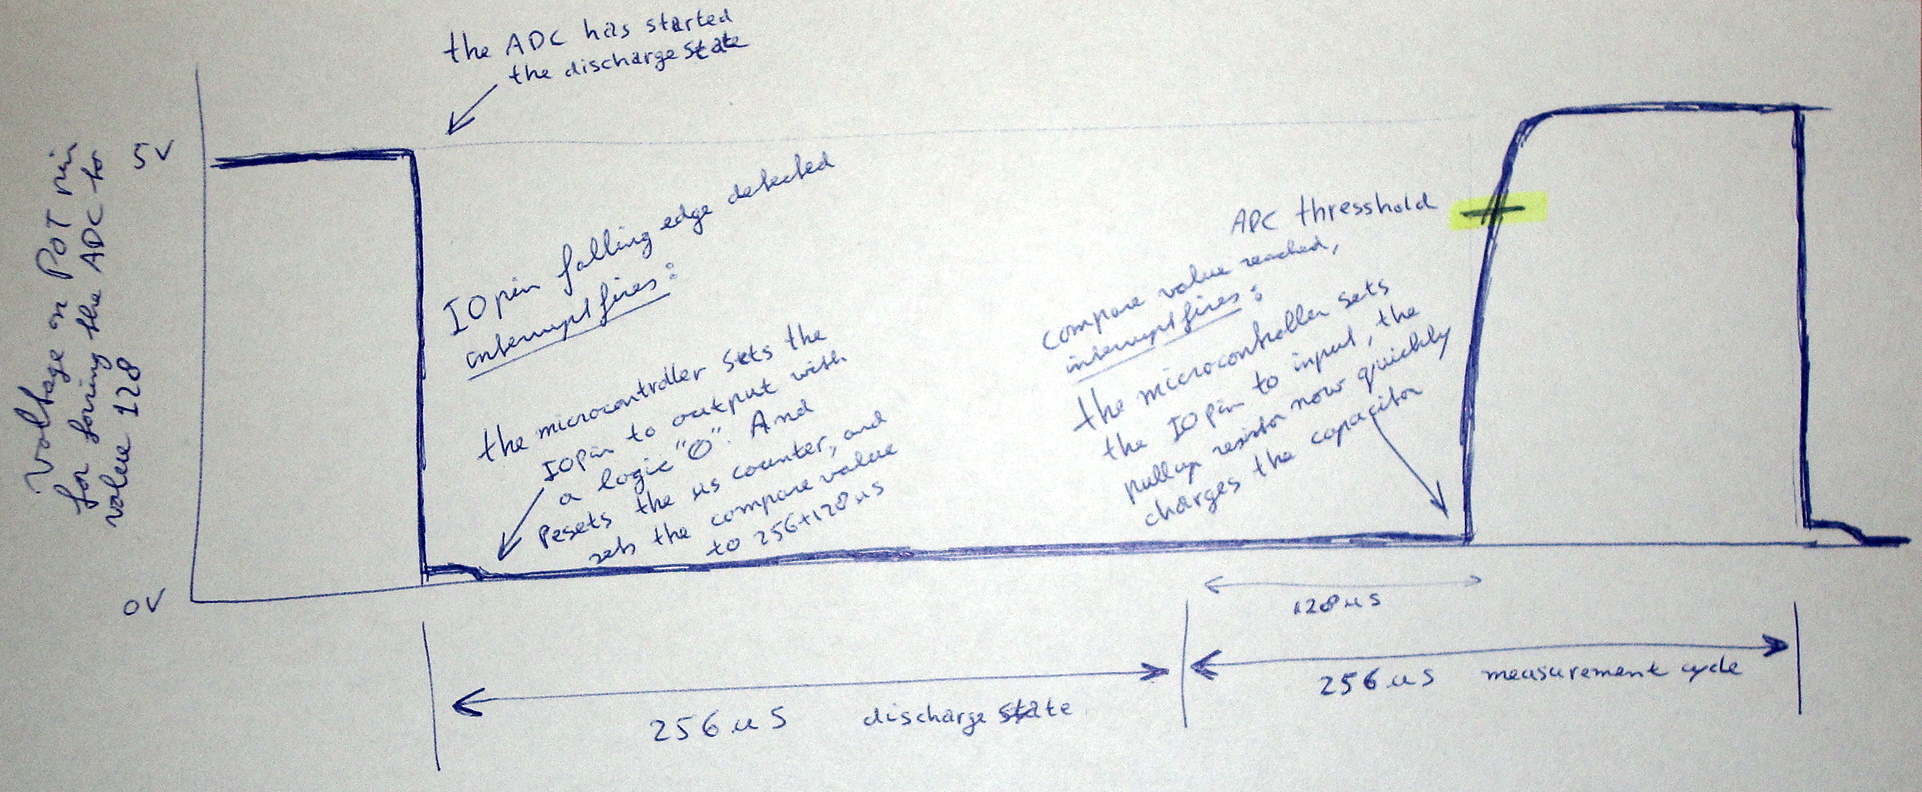 the ADC has started
the discharge state
Voltage on POT pin
for forcing the ADC to
value 128
5V
0V
IO pin falling edge detected
interrupt fires:
the microcontroller sets the
IO pin to output with
a logic "0". And
resets the us counter, and
sets the compare value
to 256+128us
ADC thresshold
compare value reached,
interrupt fires:
the microcontroller sets
the IO pin to input, the
pullup resistor now quickly
charges the capacitor
128us
256us discharge state
256us measurement cycle